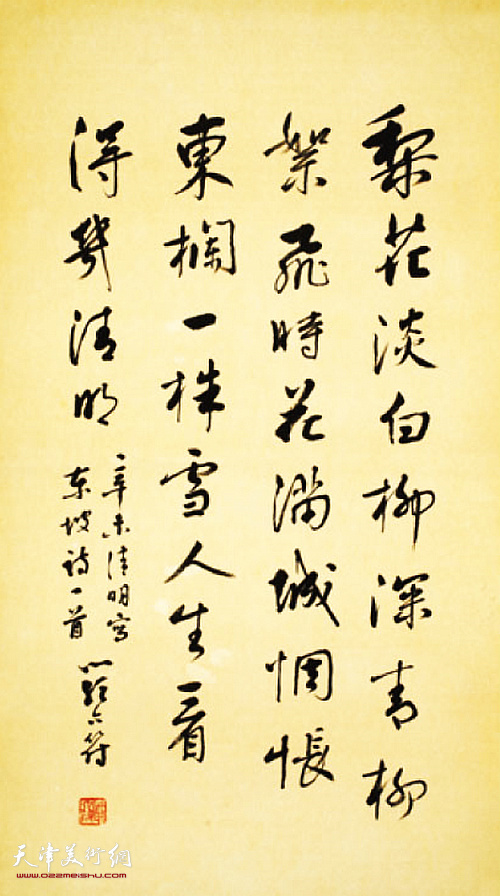 梨花淡白柳深青柳
絮飛時花滿城惆悵
東欄一株雪人生看
得幾清明
辛未清明寫
东坡诗一首
天津美術網
www.022meishu.com